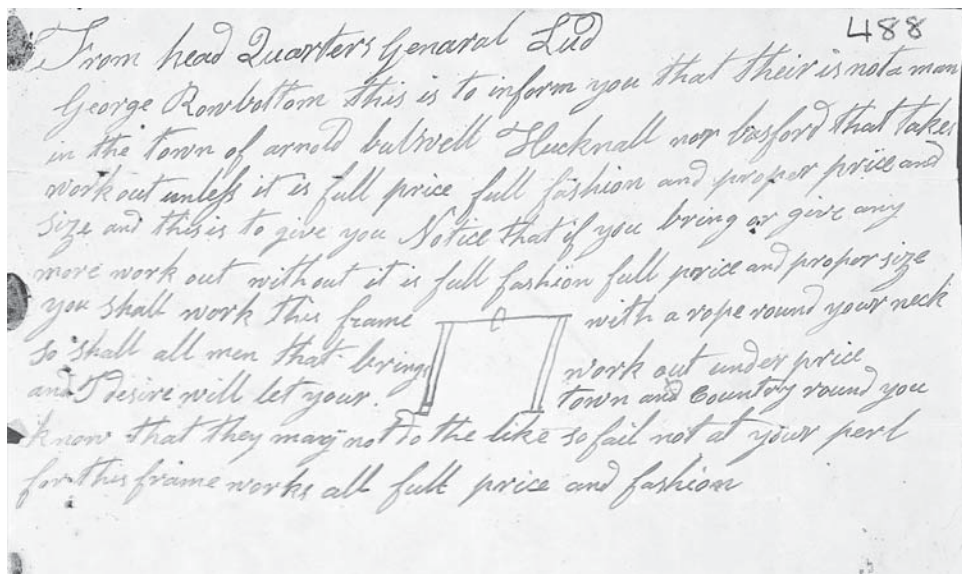 488
From head Quarters Genaral Lud
George Rowbottom this is to inform you that their is not a man
in the town of arnold bulwell Hucknall nor basford that takes
work out unless it is full price full fashion and proper price and
size and this is to give you Notice that if you bring or give any
more work out without it is full fashion full price and proper size
you shall work this frame with a rope round your neck
so shall all men that brings work out under price
and I desire will let your town and Country round you
know that they may not do the like so fail not at your perl
for this frame works all full price and fashion